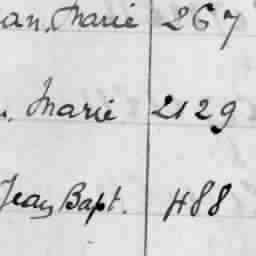 an, Marie 267
, Marie 2129
Jean Bapt. 488